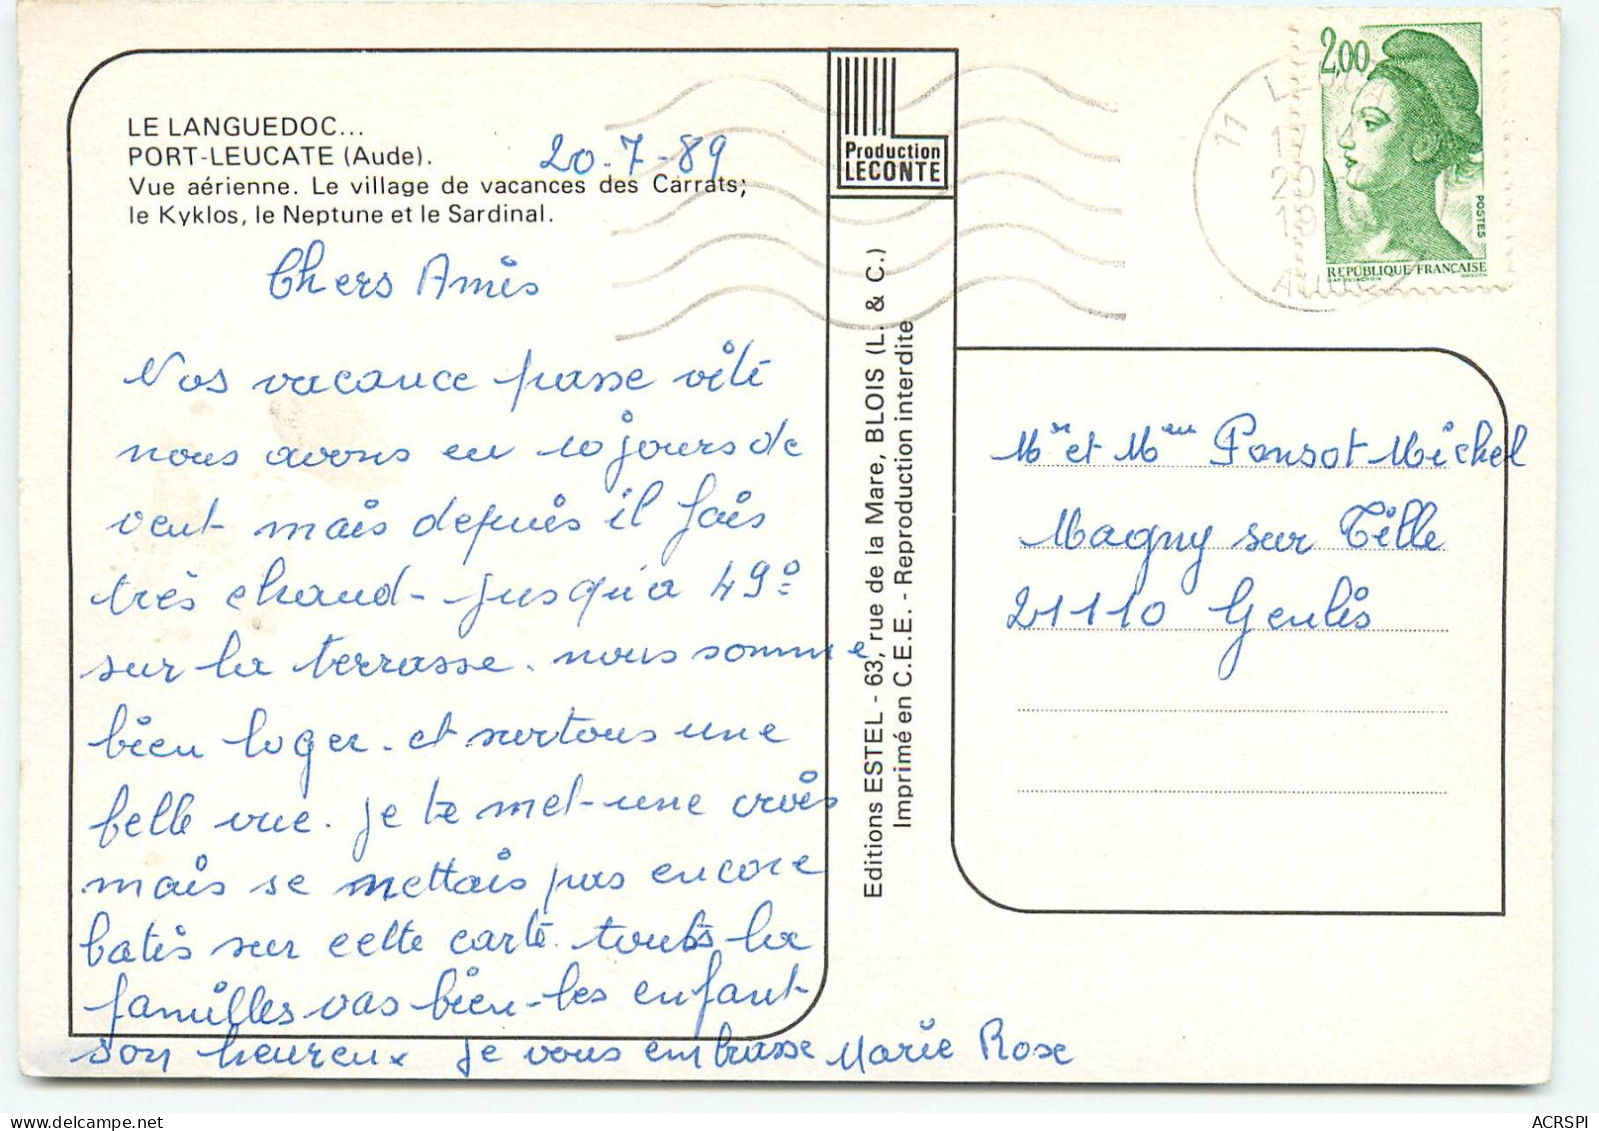 LE LANGUEDOC...
PORT-LEUCATE (Aude).
20-7-89
Vue aérienne. Le village de vacances des Carrats;
le Kyklos, le Neptune et le Sardinal.
Chers Amis
Nos vacance passe vite
nous avons eu 10 jours de
vent mais depuis il fais
très chaud - jusqu'a 49°
sur la terrasse. nous somme
bien loger. et surtous une
belle vue. je te met une crois
mais se mettais pas encore
batis sur cette carte. touts la
familles vas bien - les enfant
son heureux je vous embrasse Marie Rose
Production
LECONTE
Editions ESTEL - 63, rue de la Mare, BLOIS (L. & C.)
Imprimé en C.E.E. - Reproduction interdite
2,00
POSTES
REPUBLIQUE FRANÇAISE
11
17
20
19
Mr et Mme Ponsot Michel
Magny sur Tille
21110 Genlis
ACRSPI